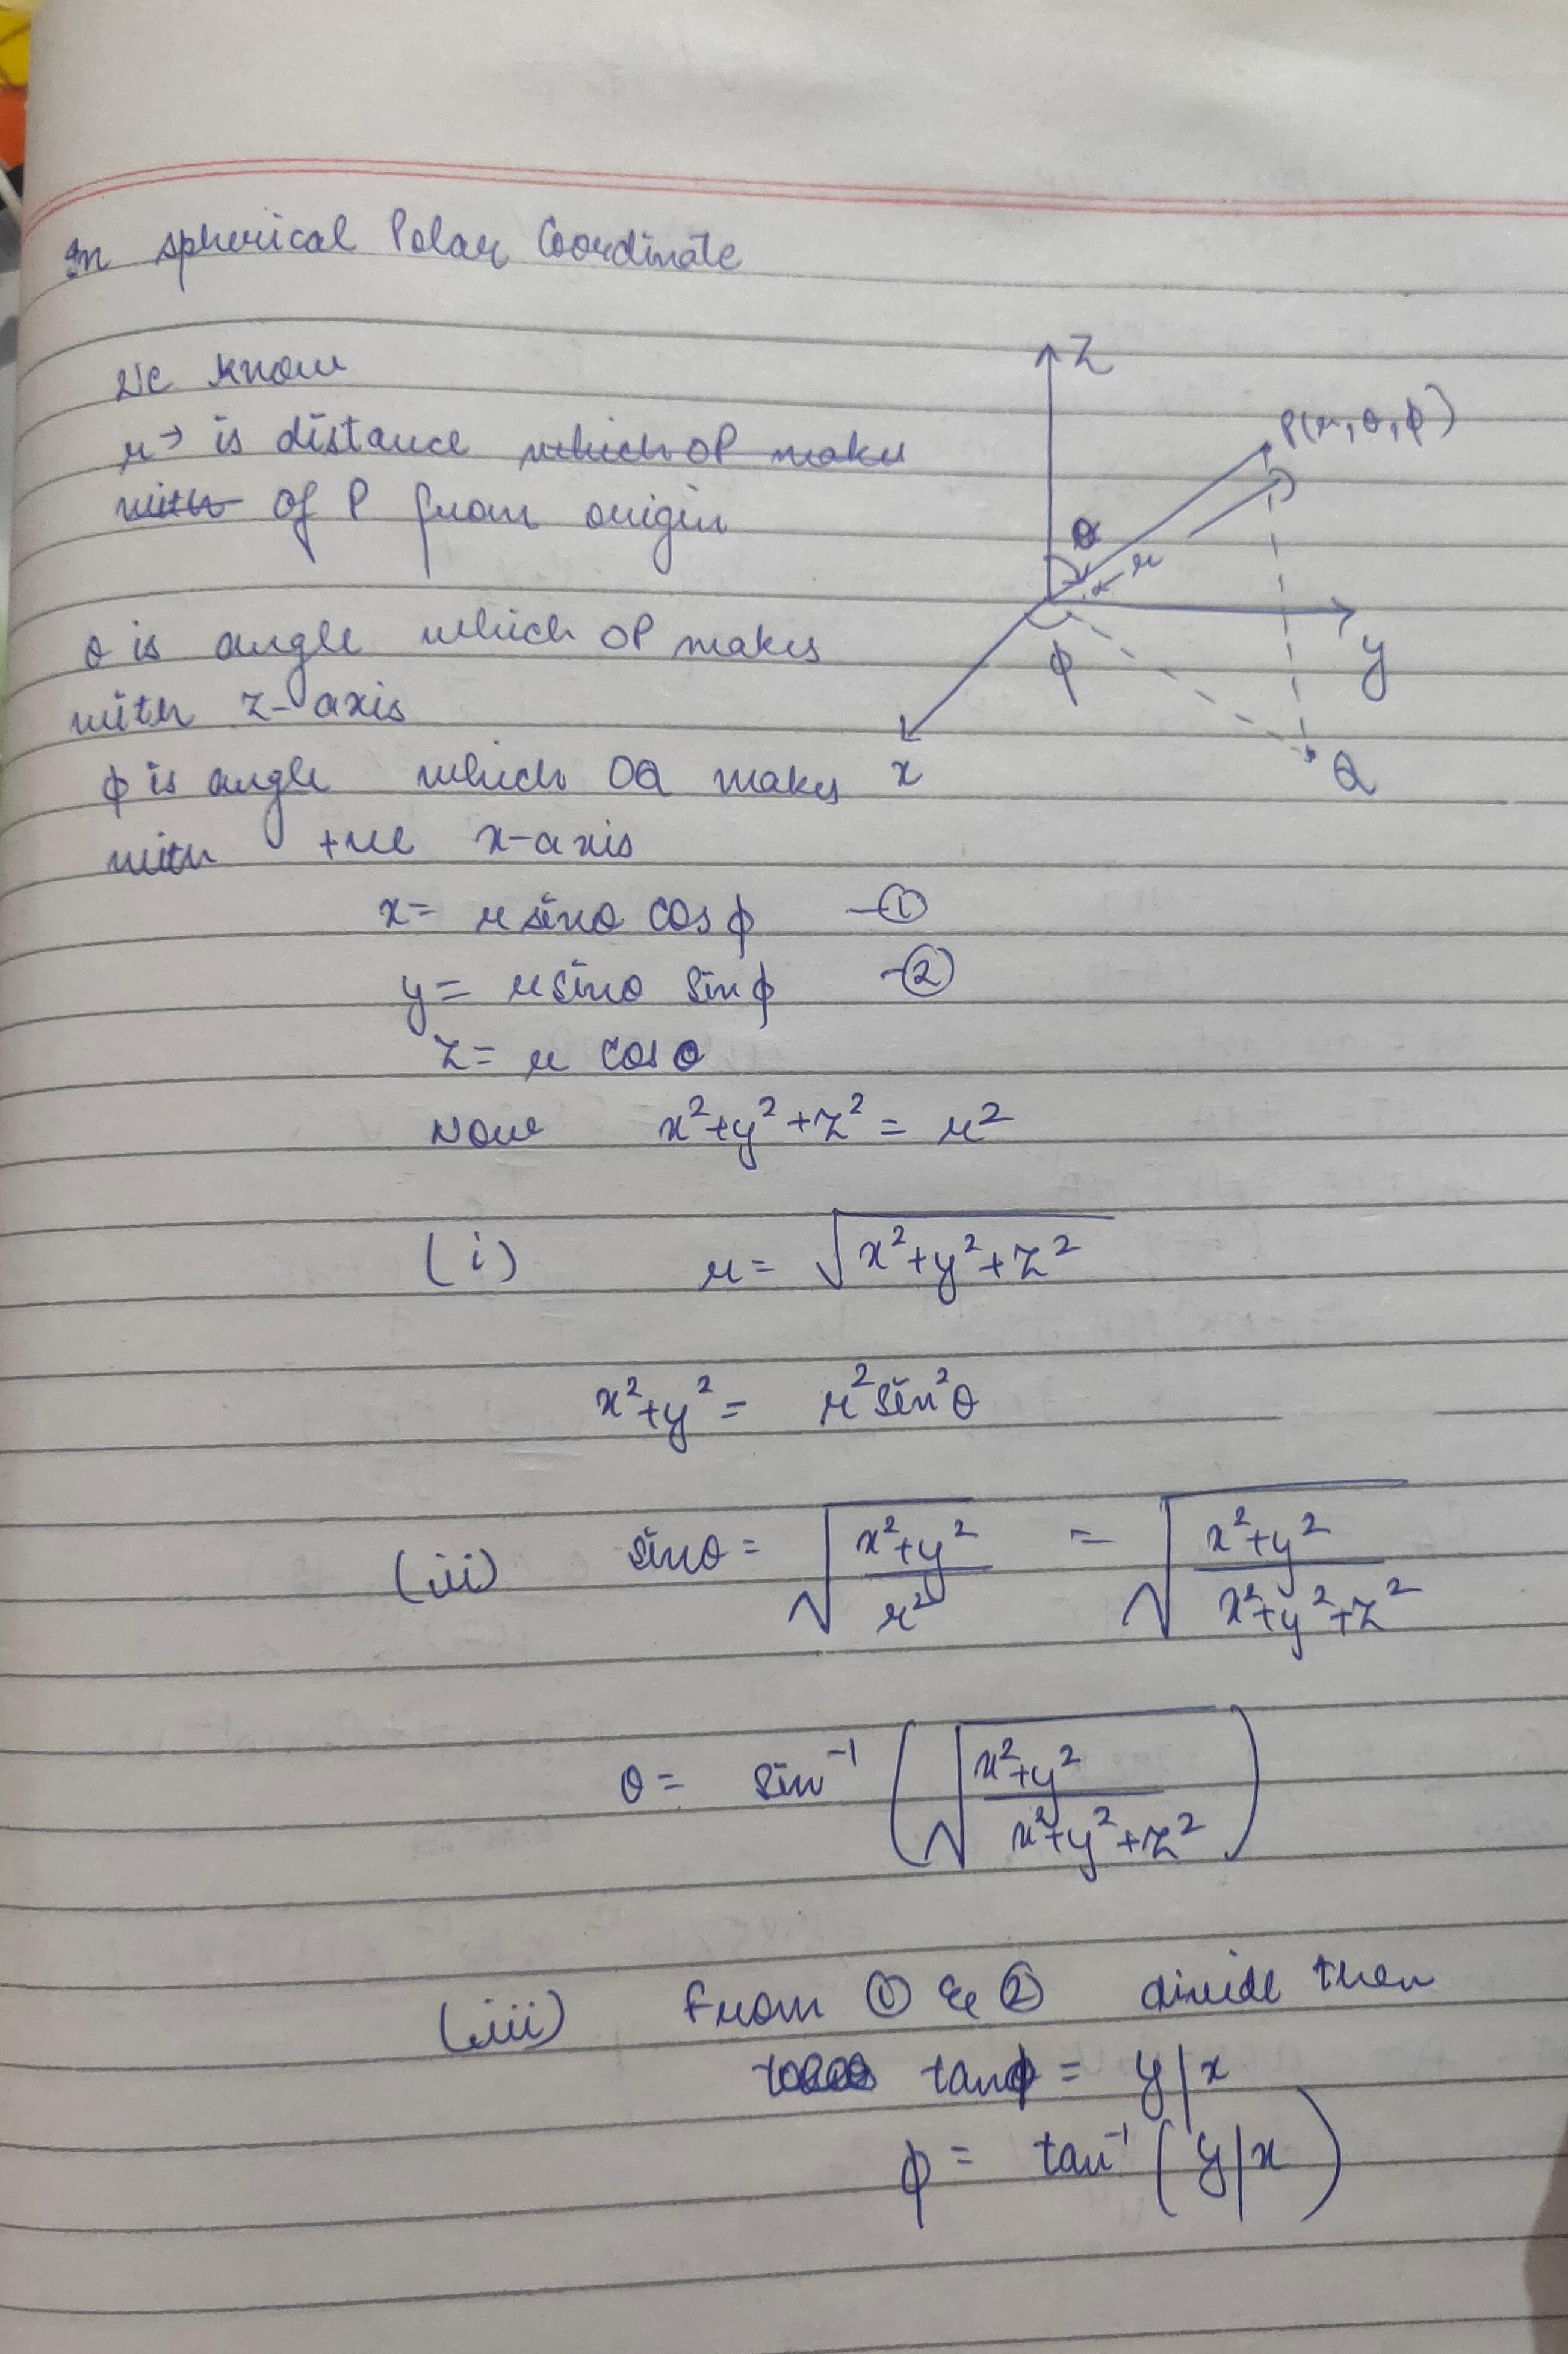 In spherical Polar Coordinate
We know
r → is distance which OP makes
with of P from origin
θ is angle which OP makes
with z-axis
φ is angle which OQ makes
with +ve x-axis
z
P(r, θ, φ)
θ
r
φ
y
x
Q
x = r sinθ cos φ —①
y = r sinθ sin φ —②
z = r cos θ
Now x²+y²+z² = r²
(i) r = √(x²+y²+z²)
x²+y² = r² sin²θ
(ii) sinθ = √((x²+y²)/r²) = √((x²+y²)/(x²+y²+z²))
θ = sin⁻¹(√((x²+y²)/(x²+y²+z²)))
(iii) From ① & ② divide then
tanφ = y/x
φ = tan⁻¹(y/x)